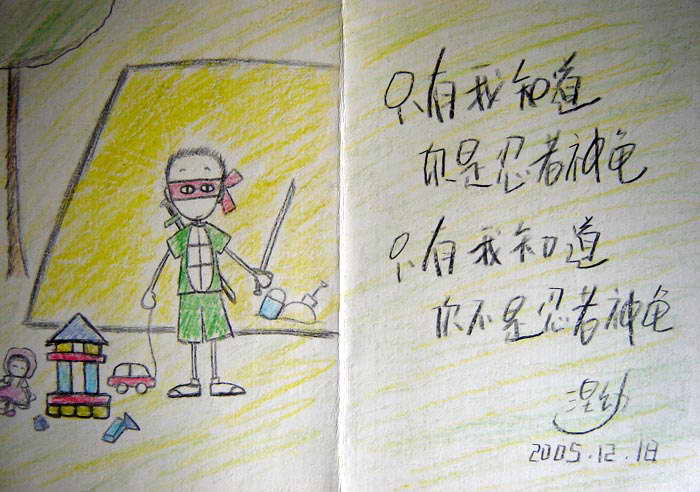 只有我知道
你是忍者神龟
只有我知道
你不是忍者神龟
2005.12.18